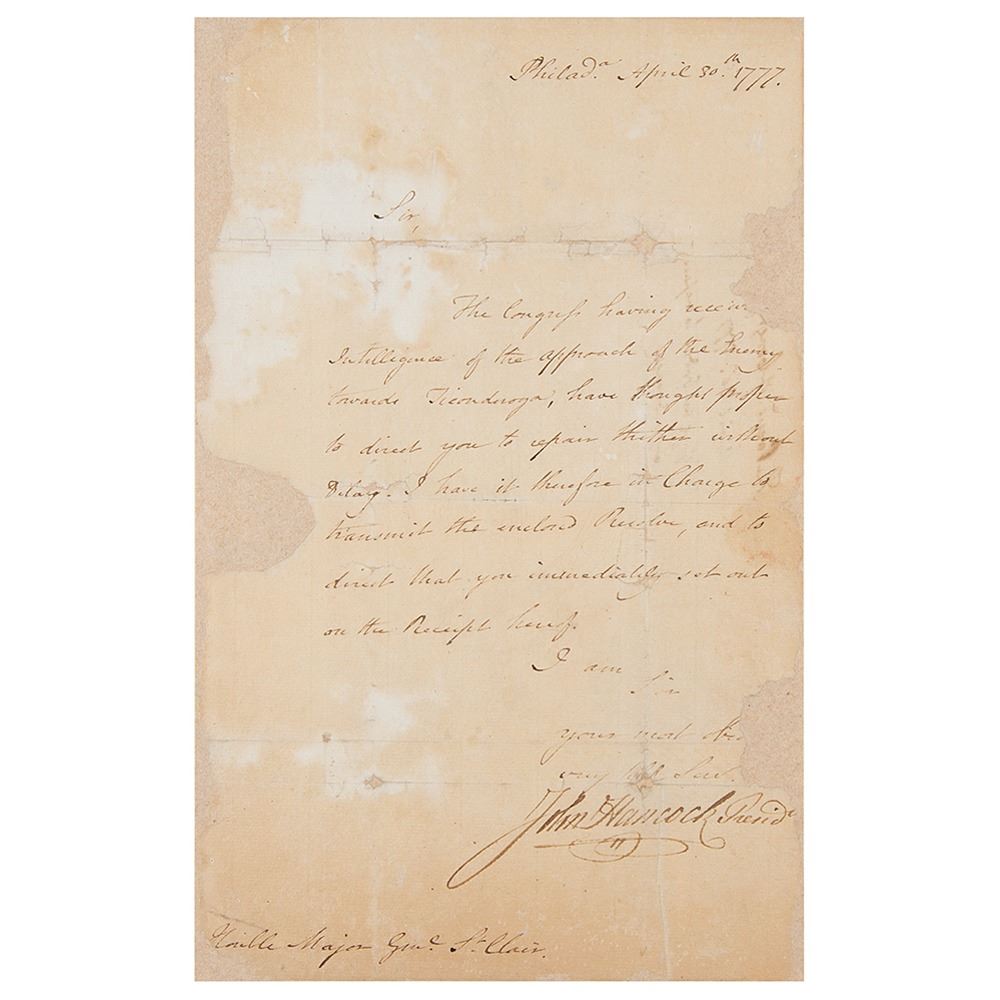 Philad.ª April 30.th 1777.
Sir,
The Congress having recei
Intelligence of the Approach of the Enemy
towards Ticonderoga, have thought proper
to direct you to repair thither without
Delay. I have it therefore in Charge to
transmit the enclosed Resolve, and to
direct that you immediately set out
on the Receipt hereof.
I am
Sir
your most obed
very hble Ser.
John Hancock Presidt
Honble Major Genl. St. Clair.